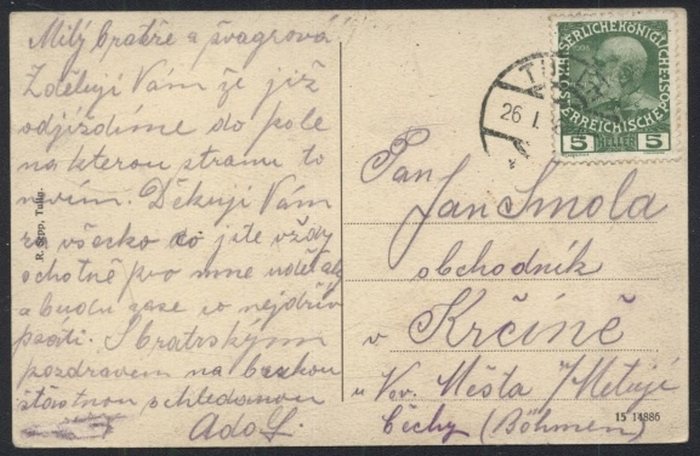 Milý bratře a švagrová!
Zděluji Vám že již
odjíždíme do pole
na kterou stranu to
nevím. Děkuji Vám
za všecko co jste vždy
ochotně pro mne udělaly
a budu zase co nejdřív
psáti. S bratrským
pozdravem na brzkou
šťastnou schledanou
Adolf.
R. Sepp, Tulln.
26 I.
5 HELLER 5
Pan
Jan Smola
obchodník
v Krčíně
u Nov. Města n/Metují
Čechy (Böhmen)
15 14886